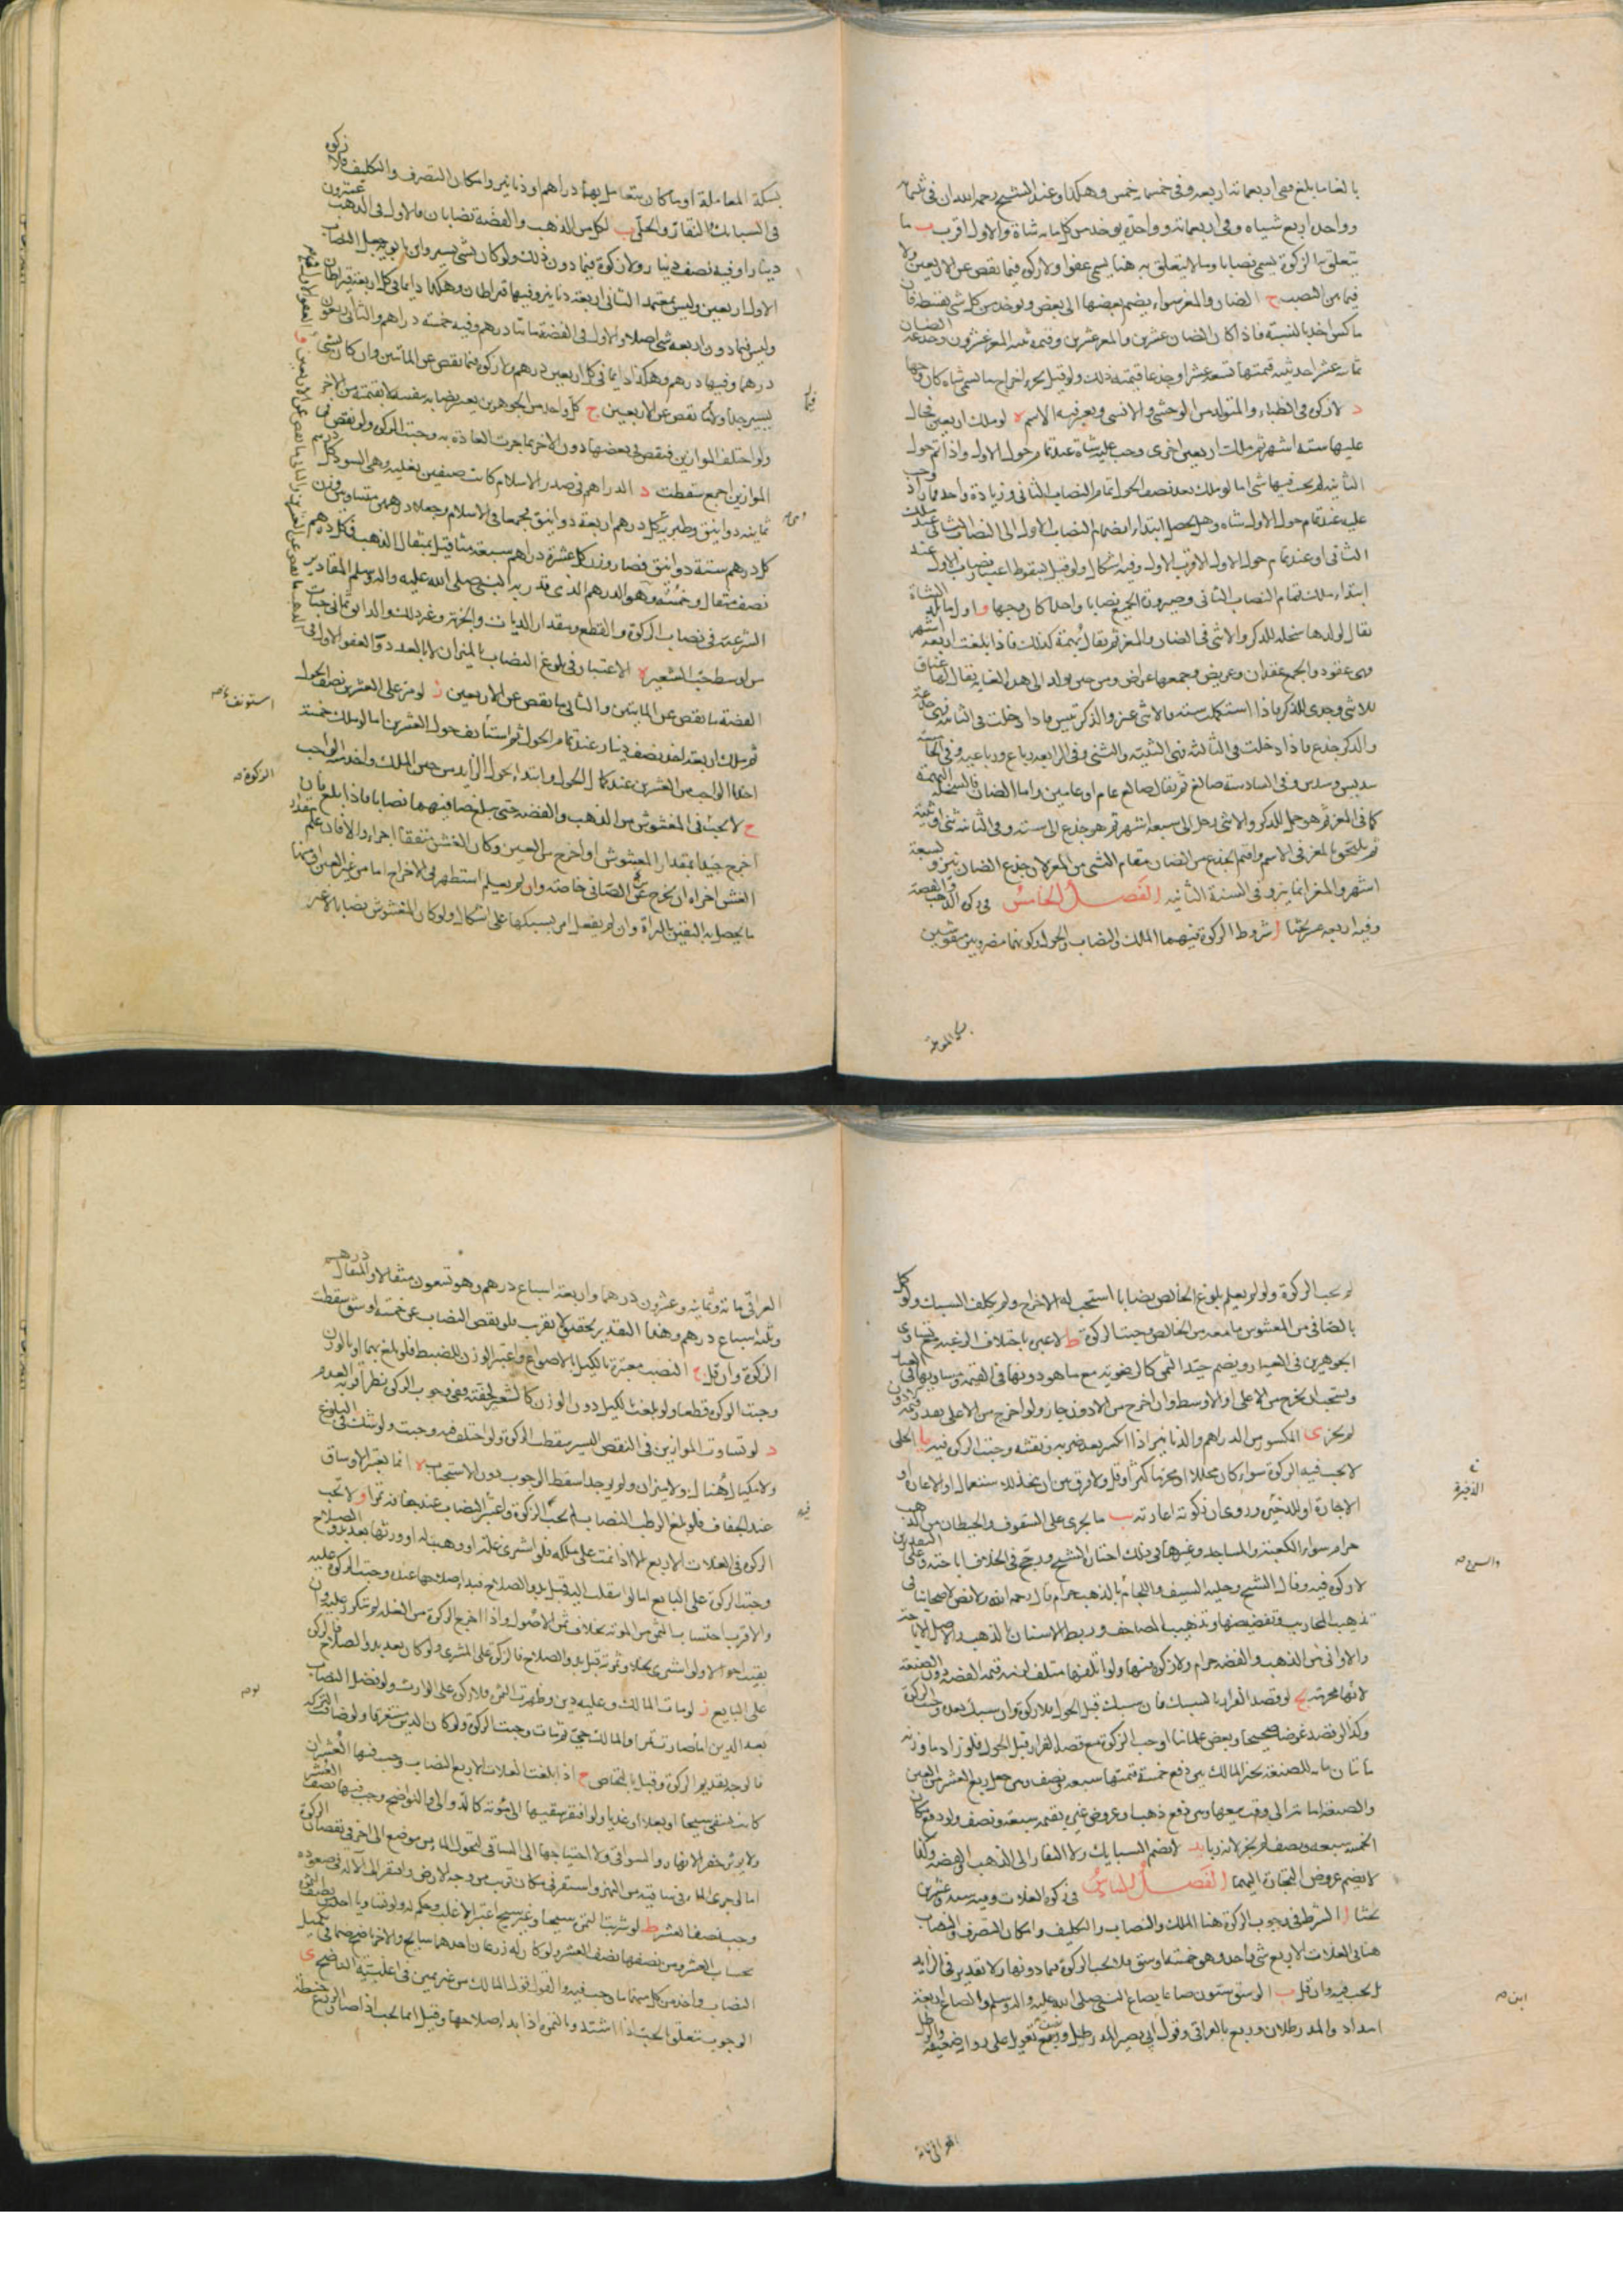 بالغا ما بلغ ففي اربعمائة اربعه وفي خمسمائه خمس وهكذا وعند الشيخ رحمه الله ان في ثلثمائه
وواحد اربع شياه وفي اربعمائة وواحدة يوخذ من كل مايه شاة والاول اقرب ب ما
يتعلق به الزكوة يسمى نصابا وما لا يتعلق به هنا يسمى عفوا ولا زكوه فيما نقص عن الاربعين ولا
فيما بين النصب ج الضان والمعز سواء يضم بعضها الى بعض ويوخذ من كل شي بقسطه فان
ماكس اخذ بالنسبة فاذا كان الضان عشرين والمعز عشرين وقيمة ثنيه المعز عشرون وجذعه الضان
ثمانيه عشر اخذ ثنيه قيمتها تسعه عشر او جذعا قيمته ذلك ولو قيل يجزي اخراج ما يسمى شاه كان وجها
د لا زكوه في الظباء والمتولد من الوحشي والانسي ويعتبر فيه الاسم ه لو ملك اربعين فحال
عليها سته اشهر ثم ملك اربعين اخرى وجب عليه شاة عند تمام حول الاول واذا تم حول
الثانيه لم يجب فيها شي اما لو ملك بعد نصف الحول تمام النصاب الثاني وزيادة واحده فما زاد وجب
عليه عند تمام حول الاول شاه وهل يحصل ابتداء انضمام النصاب الاول الى النصاب الثاني عند ملك
الثاني او عند تمام حول الاول الاقرب الاول وفيه اشكال ولو قيل بسقوط اعتبار نصاب الاول عند
ابتداء ملك تمام النصاب الثاني وصيرورة الجميع نصابا واحدا كان وجها و اول ما تلد الشاة
يقال لولدها سخله للذكر والانثى في الضان والمعز ثم يقال بهمة كذلك فاذا بلغت اربعه اشهر
فهي عقود والجمع عقدان وعريض وجمعها عراض ومن حين يولد الى هذه الغايه يقال لها عناق
للانثى وجدي للذكر فاذا استكملت سنه فالانثى عنز والذكر تيس فاذا دخلت في الثانيه فهي جذعة
والذكر جذع فاذا دخلت في الثالثه فهي الثنيه والثني وفي الرابعه رباع ورباعيه وفي الخامسه
سديس وسدس وفي السادسة صالغ ثم يقال صالغ عام او عامين واما الضان فالسخله والبهمة
كما في المعز ثم هو حمل للذكر والانثى رخل الى سبعه اشهر ثم هو جذع الى سنه وفي الثانيه ثني او ثنية
ثم يلتحق بالمعز في الاسم واقيم الجذع من الضان مقام الثني من المعز لان جذع الضان ينزو لسبعة
اشهر والمعز انما ينزو في السنة الثانيه الفصل الخامس في زكوه الذهب والفضة
وفيه اربعه عشر بحثا ا شروط الزكوة فيهما الملك والنصاب والحول وكونهما مضروبين منقوشين
بسكة المعاملة
بسكة المعاملة او ما كان يتعامل بهما دراهم او دنانير وامكان التصرف والتكليف فلا زكوة
في السبايك والنقار والحلي ب لكل من الذهب والفضة نصابان فالاول في الذهب عشرون
دينارا وفيه نصف دينار ولا زكوة فيما دون ذلك ولو كان بشي يسير وابن بابويه جعل النصاب
الاول اربعين وليس بمعتمد الثاني اربعة دنانير وفيها قيراطان وهكذا دايما في كل اربعة قيراطان
وليس فيما دون اربعه شي اصلا والاول في الفضة مائتا درهم وفيه خمسة دراهم والثاني اربعون
درهما وفيها درهم وهكذا دايما في كل اربعين درهم ولا زكوه فيما نقص عن المائتين وان كان بشي
يسير جدا ولا فيما نقص عن الاربعين ج كل واحد من الجوهرين يعتبر نصابه بنفسه لا بقيمته من الاخر
ولو اختلف الموازين فنقص في بعضها دون الاخر بما جرت العادة به وجبت الزكوه ولو نقص في
الموازين اجمع سقطت د الدراهم في صدر الاسلام كانت صنفين بغليه وهي السود كل درهم
ثمانيه دوانيق وطبريه كل درهم اربعة دوانيق فجمعا في الاسلام وجعلا درهمين متساويين وزن
كل درهم ستة دوانيق فصار وزن كل عشرة دراهم سبعة مثاقيل بمثقال الذهب فكل درهم
نصف مثقال وخمسه وهو الدرهم الذي قدر به النبي صلى الله عليه واله وسلم المقادير
الشرعيه في نصاب الزكوة والقطع ومقدار الديات والجزية وغير ذلك والدانق ثماني حبات
من اوسط حب الشعير ه الاعتبار في بلوغ النصاب بالميزان لا بالعدد و العفو الاول في
الفضة ما نقص عن المايتين والثاني ما نقص عن الاربعين ز لو مر على العشرين نصف الحول
ثم ملك اربعة اخذ نصف دينار عند تمام الحول ثم استأنف حول العشرين اما لو ملك خمسة
اخذنا الواجب من العشرين عند كمال الحول وابتداء حول الزايد من حين الملك واخذ منه الواجب
ح لا تجب في المغشوش من الذهب والفضة حتى يبلغ صافيهما نصابا فاذا بلغ فان
اخرج جيدا بمقدار المغشوش او اخرج من العين وكان الغش متفقا اجزاه والا فان علم مقدار
الغش اجزاه ان يخرج عن الصافي خاصة وان لم يعلم استظهر في الاخراج اما من غير العين او منها
ما يحصل به اليقين بالبراة وان لم يفعل امر بسبكها على اشكال ولو كان المغشوش نصابا لا غير
فيما
استونف
الزكوة
لم يجب الزكوة ولو لم يعلم بلوغ الخالص نصابا استحب له الاخراج ولم يكلف السبك ولو كمل
بالصافي من المغشوش ما معه من الخالص وجبت الزكوة ط لا عبرة باختلاف الرغبة مع تساوي
الجوهرين في العيار ويضم جيد الثمن كالرضوية مع ما هو دونها في القيمة ومساويها في العيار
ويستحب ان يخرج من الاعلى او الاوسط وان اخرج من الادون جاز ولو اخرج من الاعلى بقدر قيمة الادون
لم يجز ي المكسور من الدراهم والدنانير اذا انكسر بعد ضربه ونقشه وجبت الزكوه فيه يا الحلي
لا يجب فيه الزكوة سواء كان محللا او محرما كثر او قل ولا فرق بين ان يتخذ للاستعمال او الاعارة او
الاجارة او للدخيرة وروي ان زكوته اعارته يب ما يجرى على السقوف والحيطان من الذهب
حرام سواء الكعبة والمساجد وغيرها وفي ذلك اختار الشيخ ورجح في الخلاف اباحته وعلى التقديرين
لا زكوه فيه وقال الشيخ وحلية السيف واللجام بالذهب حرام قال رحمه الله ولا نص لاصحابنا في
تذهيب المحاريب وتفضيضها وتذهيب المصاحف وربط الاسنان بالذهب والاصل الاباحة
والاواني من الذهب والفضة حرام ولا زكوه فيها ولو اتلفها متلف لزمه قيمة الفضة دون الصنعة
لانها محرمة يج لو قصد الفرار بالسبك فان سبك قبل الحول فلا زكوة وان سبك بعده وجبت الزكوة
وكذا لو قصد غرضا صحيحا وبعض علمائنا اوجب الزكوة مع قصد الفرار قبل الحول فلو زاد ما وزنه
مائتان مايه للصنعة تخير المالك بين دفع خمسة قيمتها سبعه ونصف وبين جعل ربع العشر من العين
والصنعة امانة الى وقت بيعها وبين دفع ذهب او عروض غيره بقيمه سبعة ونصف ولو دفع مكان
الخمسة سبعه ونصف لم يجز لانه ربا يد لا تضم السبايك ولا النقار الى الذهب والفضة وكذا
لا يضم عروض التجارة اليهما الفصل السادس في زكوة الغلات وفيه سبعه وعشرون
بحثا ا الشرط في وجوب الزكوة هنا الملك والنصاب والتكليف وامكان التصرف والنصاب
هنا في الغلات الاربع شي واحد وهو خمسة اوسق فلا تجب الزكوة فيما دونها ولا تقدير في الزايد
بل يجب فيه وان قل ب الوسق ستون صاعا بصاع النبي صلى الله عليه واله وسلم والصاع اربعة
امداد والمد رطلان وربع بالعراقي وقول ابي بصير المد رطل ونصف وربع تعويل على رواية ضعيفة والرطل
الذخيرة
ابن
العراقي مائة
العراقي مائة وثمانيه وعشرون درهما واربعة اسباع درهم وهو تسعون مثقالا والمثقال درهم
وثلثه اسباع درهم وهذا التقدير تحقيق لا تقريب فلو نقص النصاب عن خمسة اوسق سقطت
الزكوة وان قل ج النصب معتبرة بالكيل بالاصواع واعتبر الوزن للضبط فلو بلغ بهما او بالوزن
وجبت الزكوة قطعا ولو بلغت بالكيل دون الوزن كالشعير لخفته ففي وجوب الزكوة نظر اقربه العدم
د لو تساوت الموازين في النقص اليسير سقطت الزكوة ولو اختلف فيه وجبت ولو شك في البلوغ
ولا مكيال هناك ولا ميزان ولو يوجد اسقط الوجوب دون الاستحباب ه انما يعتبر الاوساق
عند الجفاف فلو بلغ الرطب النصاب لم تجب الزكوة واعتبر النصاب عند جفافه تمرا و لا تجب
الزكوه في الغلات الاربع الا اذا نمت على ملكه فلو اشترى غلة او وهبت له او ورثها بعد بدو الصلاح
وجبت الزكوة على البايع اما لو انتقلت اليه قبل بدو الصلاح فبدا صلاحها عنده وجبت الزكوة عليه
والاقرب احتساب الثمن من المونة بخلاف ثمن الاصول واذا اخرج الزكوة من الغلة لم تتكرر عليه وان
بقيت احوالا ولو اشترى نخلا وثمرته قبل بدو الصلاح فالزكوة على المشتري ولو كان بعد بدو الصلاح فالزكوة
على البايع ز لو مات المالك وعليه دين وظهرت الثمرة فلا زكوة على الوارث ولو فضل النصاب
بعد الدين اما لو صارت تمرا والمالك حي ثم مات وجبت الزكوة ولو كان الدين مستغرقا ولو ضاقت التركة
فالوجه تقديم الزكوة وقيل بالتحاص ح اذا بلغت الغلات الاربع النصاب وجب فيها العشر ان
كانت تسقى سيحا او بعلا او عذيا ولو افتقر سقيها الى مؤنة كالدوالي والنواضح وجب فيها نصف العشر
ولا يوثر حفر الانهار والسواقي ولا احتياجها الى الساقي لتحول الماء من موضع الى اخر في نقصان الزكوة
اما لو جرى الماء في ساقية من النهر واستقر في مكان قريب من وجه الارض وافتقر الى الالة في صعوده
وجب نصف العشر ط لو شربت الثمرة سيحا وغير سيح اعتبر الاغلب وحكم به ولو تساويا اخذ
بحساب العشر من نصفها ونصف العشر ولو كان له زرعان احدهما سايح والاخر ناضح ضما في تكميل
النصاب واخذ من كل منهما ما وجب فيه والقول قول المالك من غير يمين في اغلبية الناضح ي
الوجوب يتعلق بالحب اذا اشتد وبالثمرة اذا بدا صلاحها وقيل انما تجب اذا صار الزرع حنطة